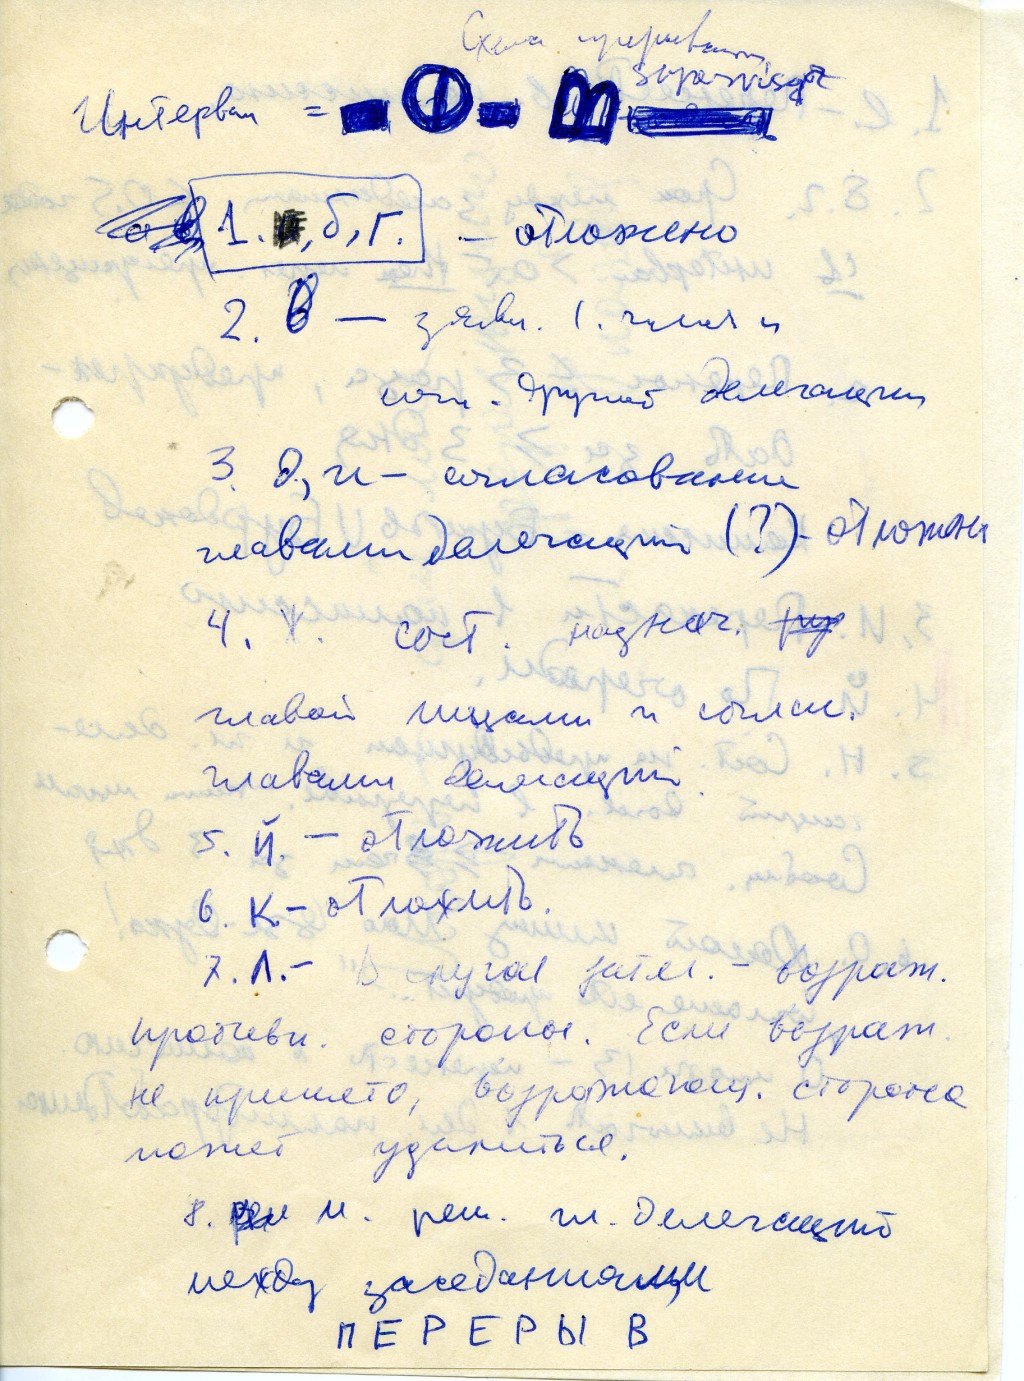 Схема прерыван
Интервал = Ф В
1. б, г. – отложено
2. В — заявл. 1. члена и
согл. другой делегации
3. Д, и – согласование
главами делегаций (?) – отложено
4. сост. назнач.
главой и соглас.
главами делегаций
5. Й. – отложить
6. К. – отложить.
7. Л. – В случае затяг. – возраж.
противн. стороны. Если возраж.
не принято, возражающ. сторона
может удалиться.
8. м. реш. гл. делегаций
между заседаниями
ПЕРЕРЫВ